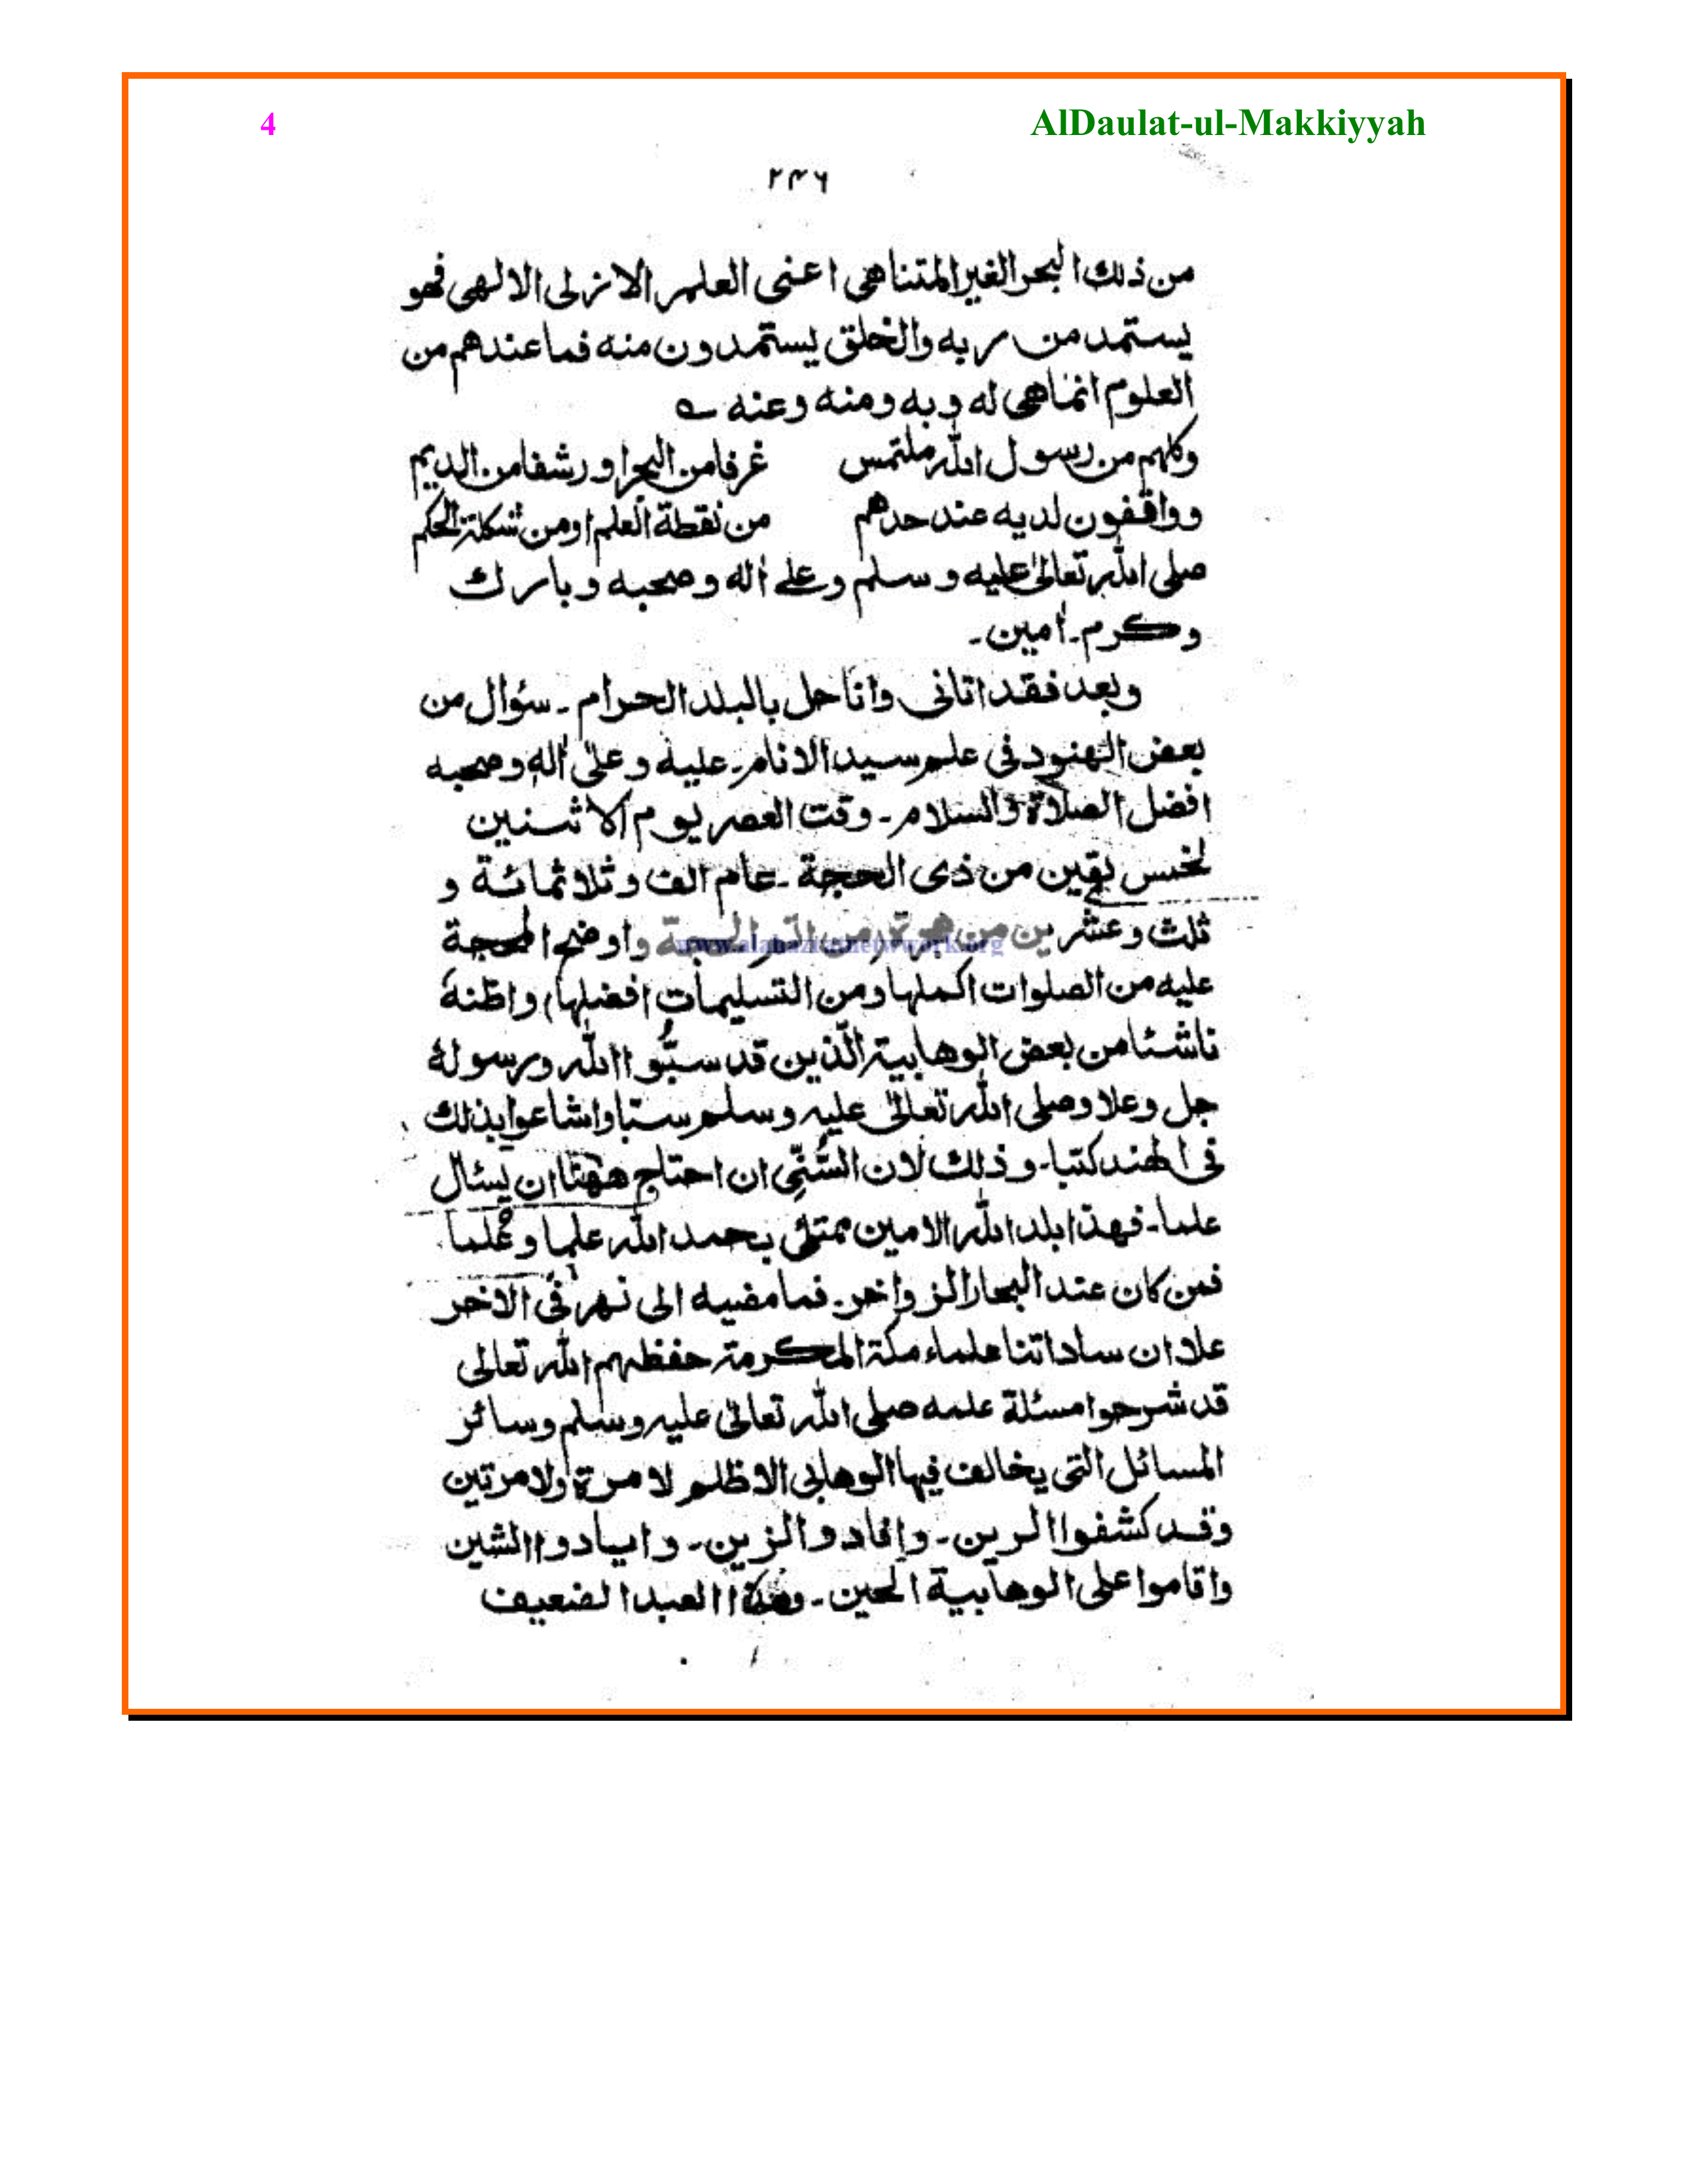 4 AlDaulat-ul-Makkiyyah
۲۴۶
من ذلك البحر الغير المتناهى اعنى العلم الازلى الالهى فهو
يستمد من ربه والخلق يستمدون منه فما عندهم من
العلوم انما هى له وبه ومنه وعنه ؎
وكلهم من رسول الله ملتمس غرفا من البحر او رشفا من الديم
وواقفون لديه عند حدهم من نقطة العلم او من شكلة الحكم
صلى الله تعالىٰ عليه وسلم وعلى اٰله وصحبه وبارك
وكرم۔ اٰمين۔
وبعد فقد اتانى وانا حل بالبلد الحرام۔ سؤال من
بعض الهنود فى علم سيد الانام۔ عليه وعلىٰ اٰله وصحبه
افضل الصلاة والسلام۔ وقت العصر يوم الاثنين
لخمس بقين من ذى الحجة۔ عام الف وثلاثمائة و
ثلث وعشرين من هجرة من اتم الحجة واوضح المحجة
www.alahazratnetwork.org
عليه من الصلوات اكملها ومن التسليمات افضلها) واظنهٗ
ناشئا من بعض الوهابية الّذين قد سبُّوا الله ورسوله
جل وعلا وصلى الله تعالىٰ عليه وسلم سبّا واشاعوا بذلك
فى الهند كتبا۔ وذلك لان السُّنّى ان احتاج ههنا ان يسئال
علما۔ فهذا بلد الله الامين ممتلئ بحمد الله علما وعُلما
فمن كان عند البحار الزواخر۔ فما مضيه الى نهر فى الاخر
علا ان ساداتنا علماء مكة المكرمة حفظهم الله تعالى
قد شرحوا مسئلة علمه صلى الله تعالىٰ عليه وسلم وسائر
المسائل التى يخالف فيها الوهابى الاظلم لا مرة ولا مرتين
وقد كشفوا الرين۔ وافادوا الزين۔ وابادوا الشين
واقاموا على الوهابية الحين۔ وهذا العبد الضعيف